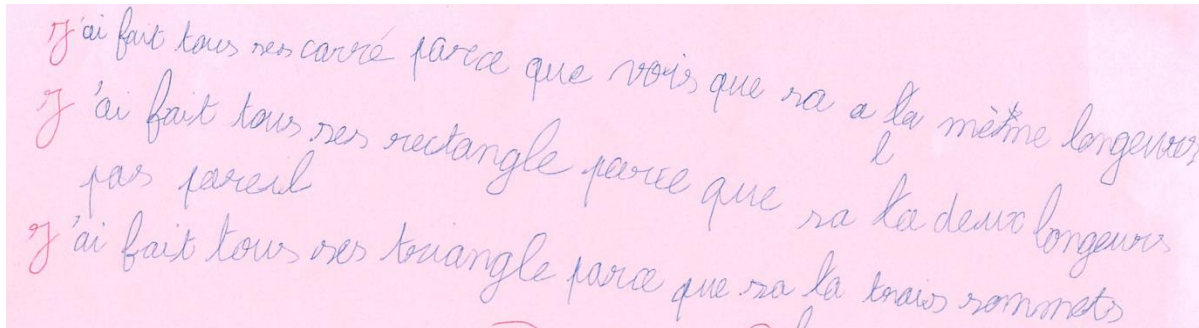 J'ai fait tous ses carré parce que vois que sa a la même longeurs
J'ai fait tous ses rectangle parce que sa la deux longeurs
pas pareil
J'ai fait tous ses triangle parce que sa la trois sommets